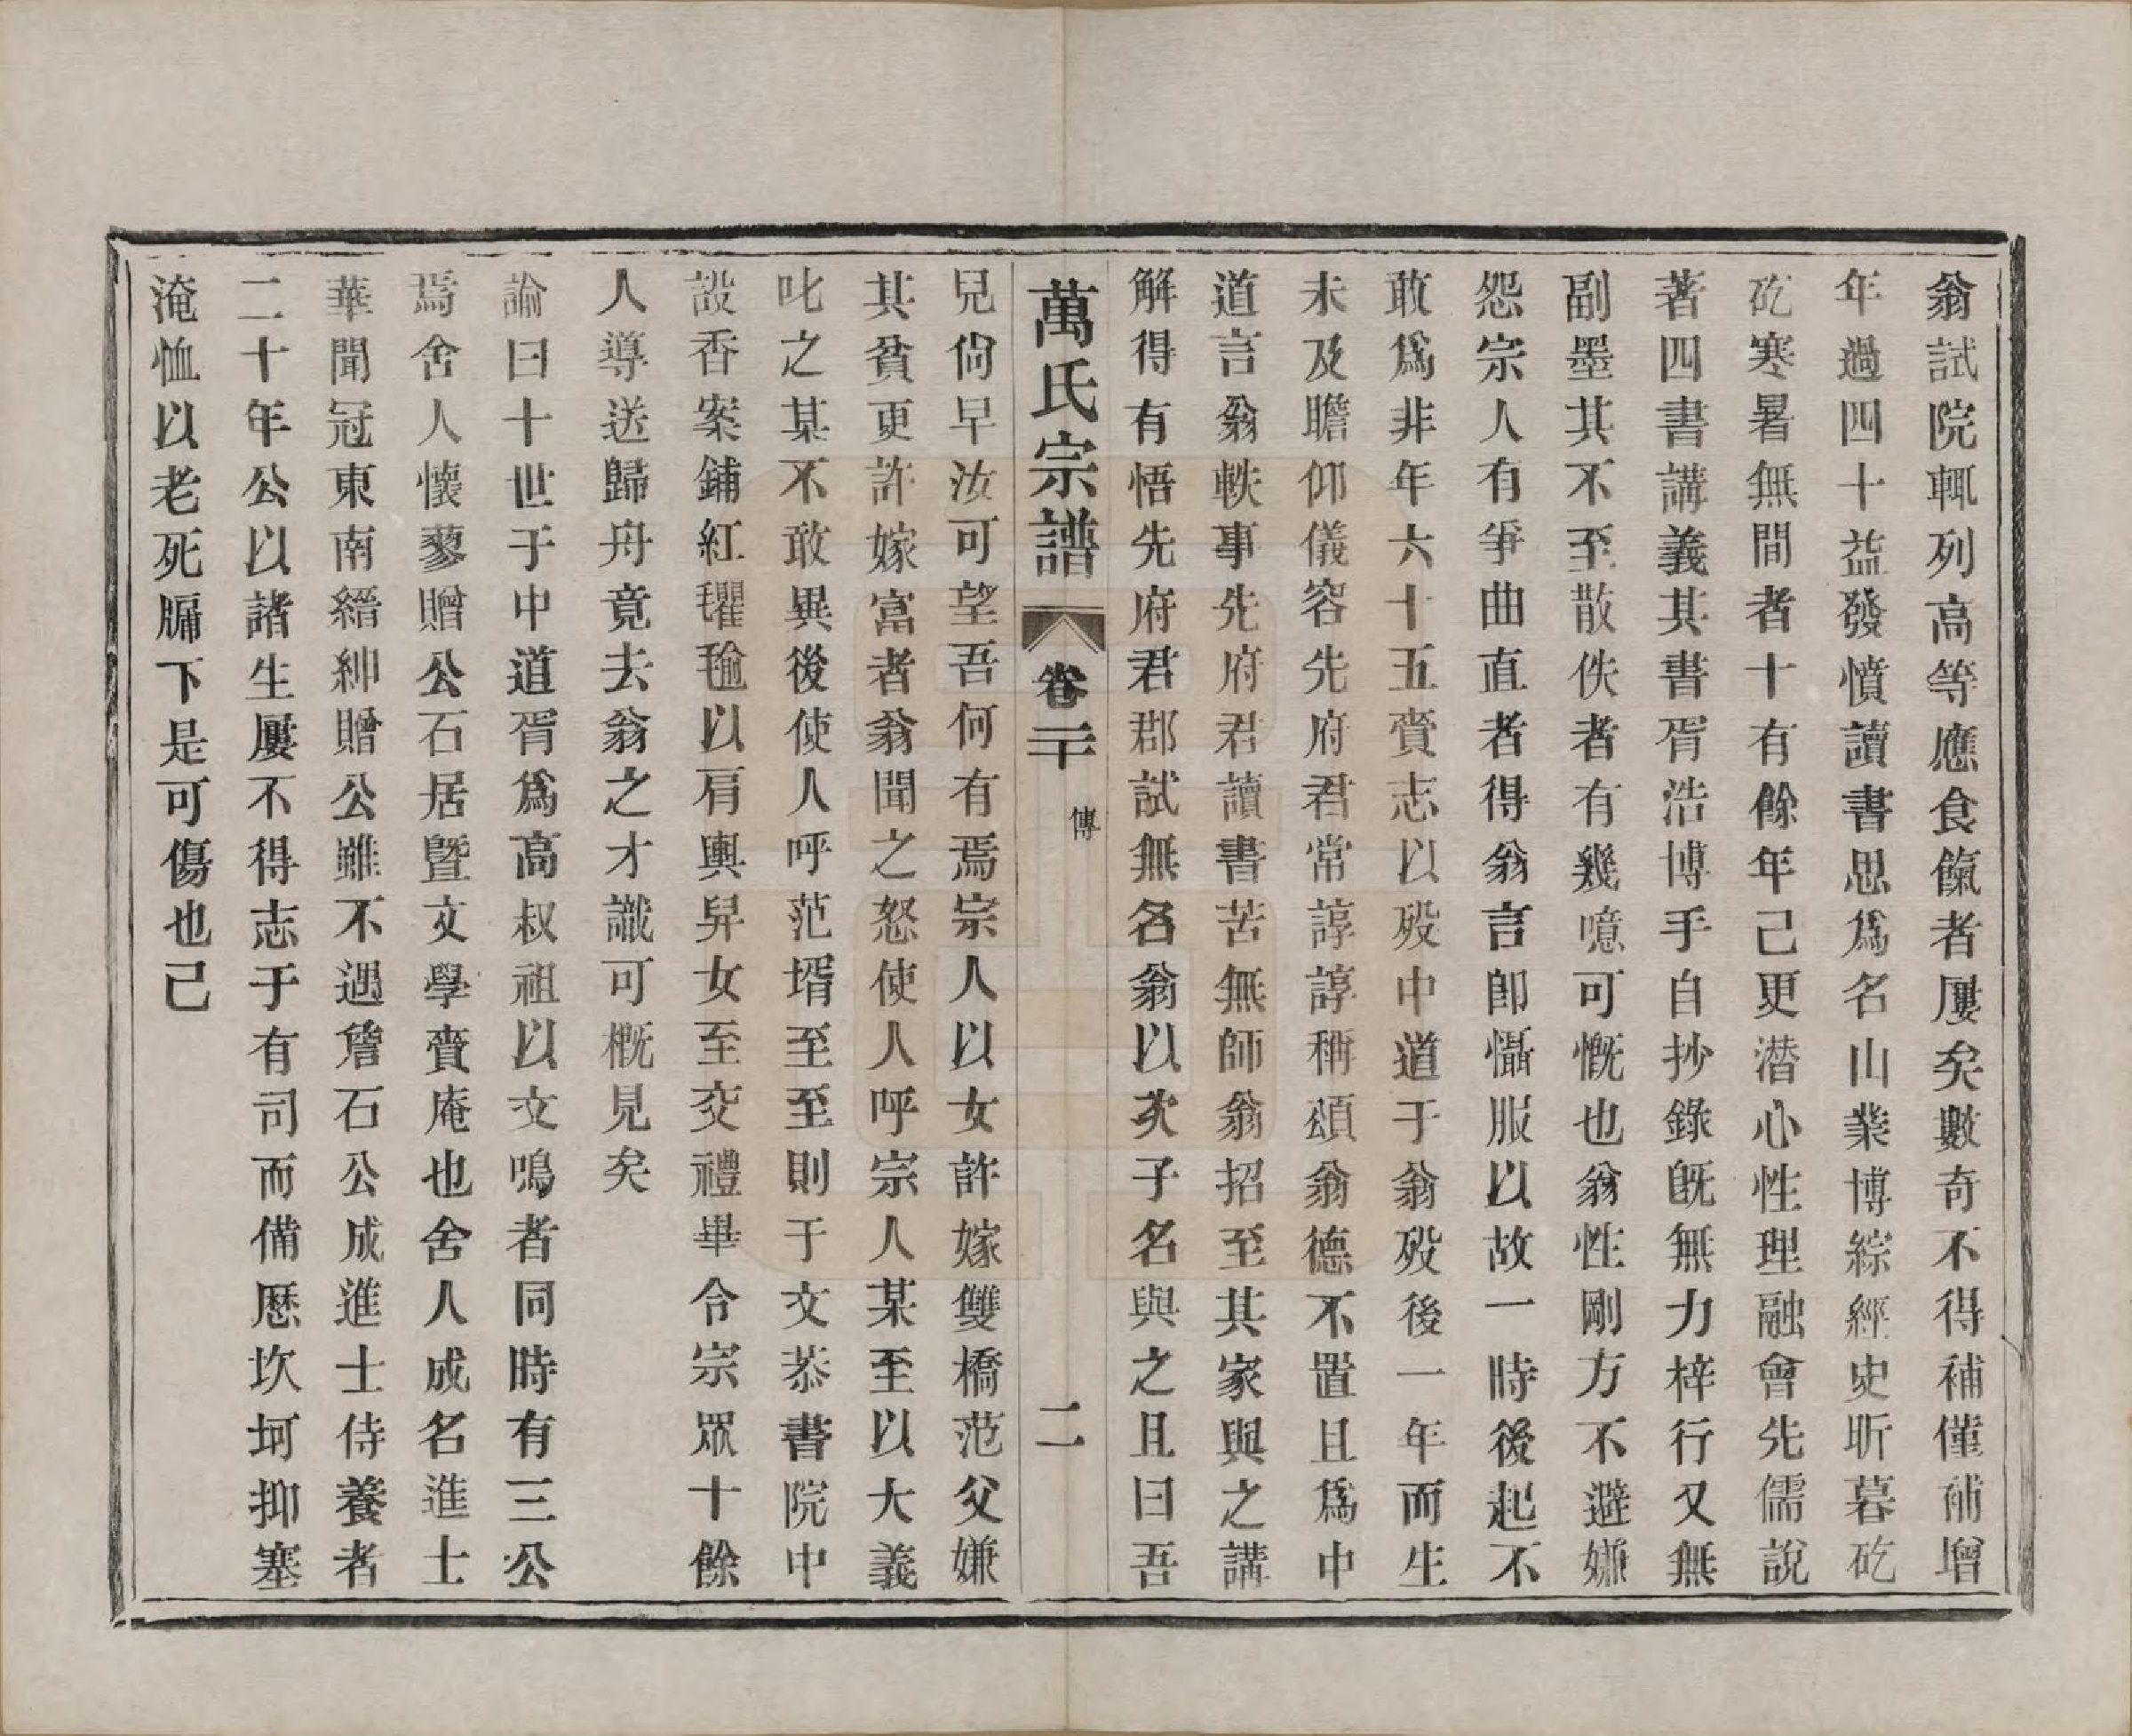 翁試院輒列高等應食餼者屢矣數奇不得補僅補增
年過四十益發憤讀書思爲名山業博綜經史昕暮矻
矻寒暑無間者十有餘年已更潛心性理融會先儒說
著四書講義其書胥浩博手自抄錄旣無力梓行又無
副墨其不至散佚者有幾噫可慨也翁性剛方不避嫌
怨宗人有爭曲直者得翁言卽懾服以故一時後起不
敢爲非年六十五賫志以歿中道于翁歿後一年而生
未及瞻仰儀容先府君常諄諄稱頌翁德不置且爲中
道言翁軼事先府君讀書苦無師翁招至其家與之講
解得有悟先府君郡試無名翁以次子名與之且曰吾
萬氏宗譜 卷二十 傳 二
兒尙早汝可望吾何有焉宗人以女許嫁雙橋范父嫌
其貧更許嫁富者翁聞之怒使人呼宗人某至以大義
叱之某不敢異後使人呼范壻至至則于文恭書院中
設香案鋪紅氍毹以肩輿舁女至交禮畢令宗眾十餘
人導送歸舟竟去翁之才識可槪見矣
論曰十世于中道胥爲高叔祖以文鳴者同時有三公
焉舍人懷蓼贈公石居曁文學賫庵也舍人成名進士
華聞冠東南縉紳贈公雖不遇詹石公成進士侍養者
二十年公以諸生屢不得志于有司而備歷坎坷抑塞
淹恤以老死牖下是可傷也已